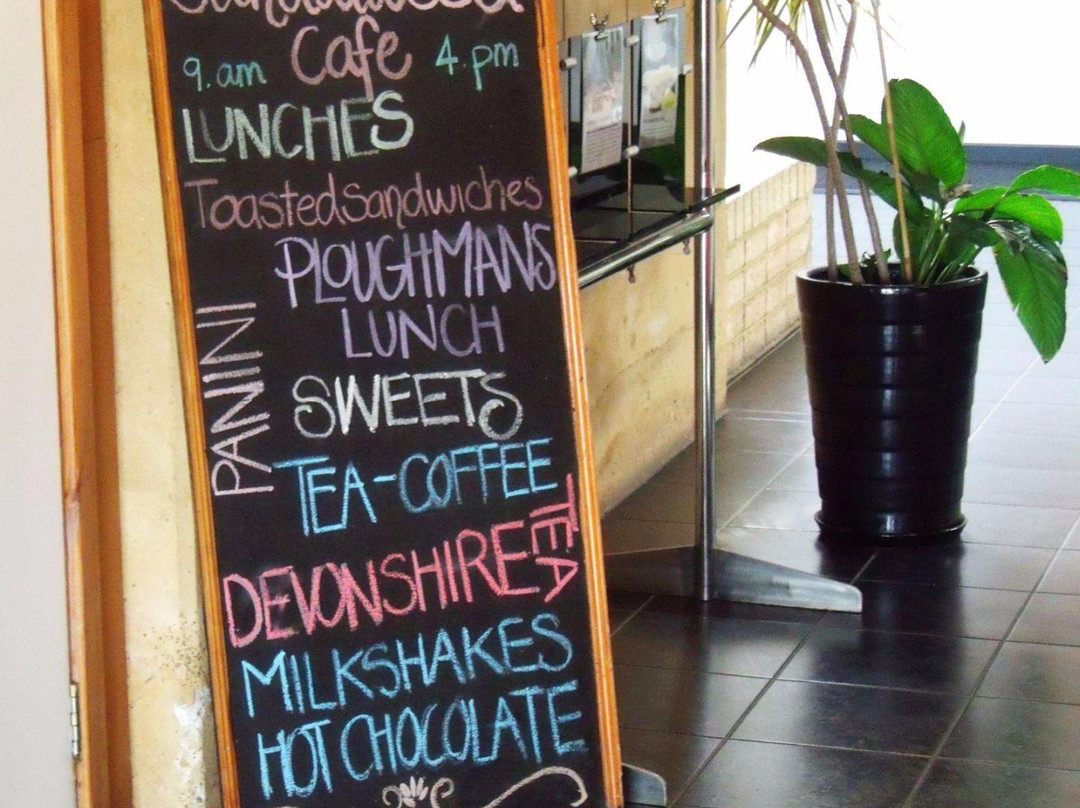 Cafe
9.am 4.pm
LUNCHES
Toasted Sandwiches
PLOUGHMANS
LUNCH
PANINI
SWEETS
TEA-COFFEE
DEVONSHIRE TEA
MILKSHAKES
HOT CHOCOLATE